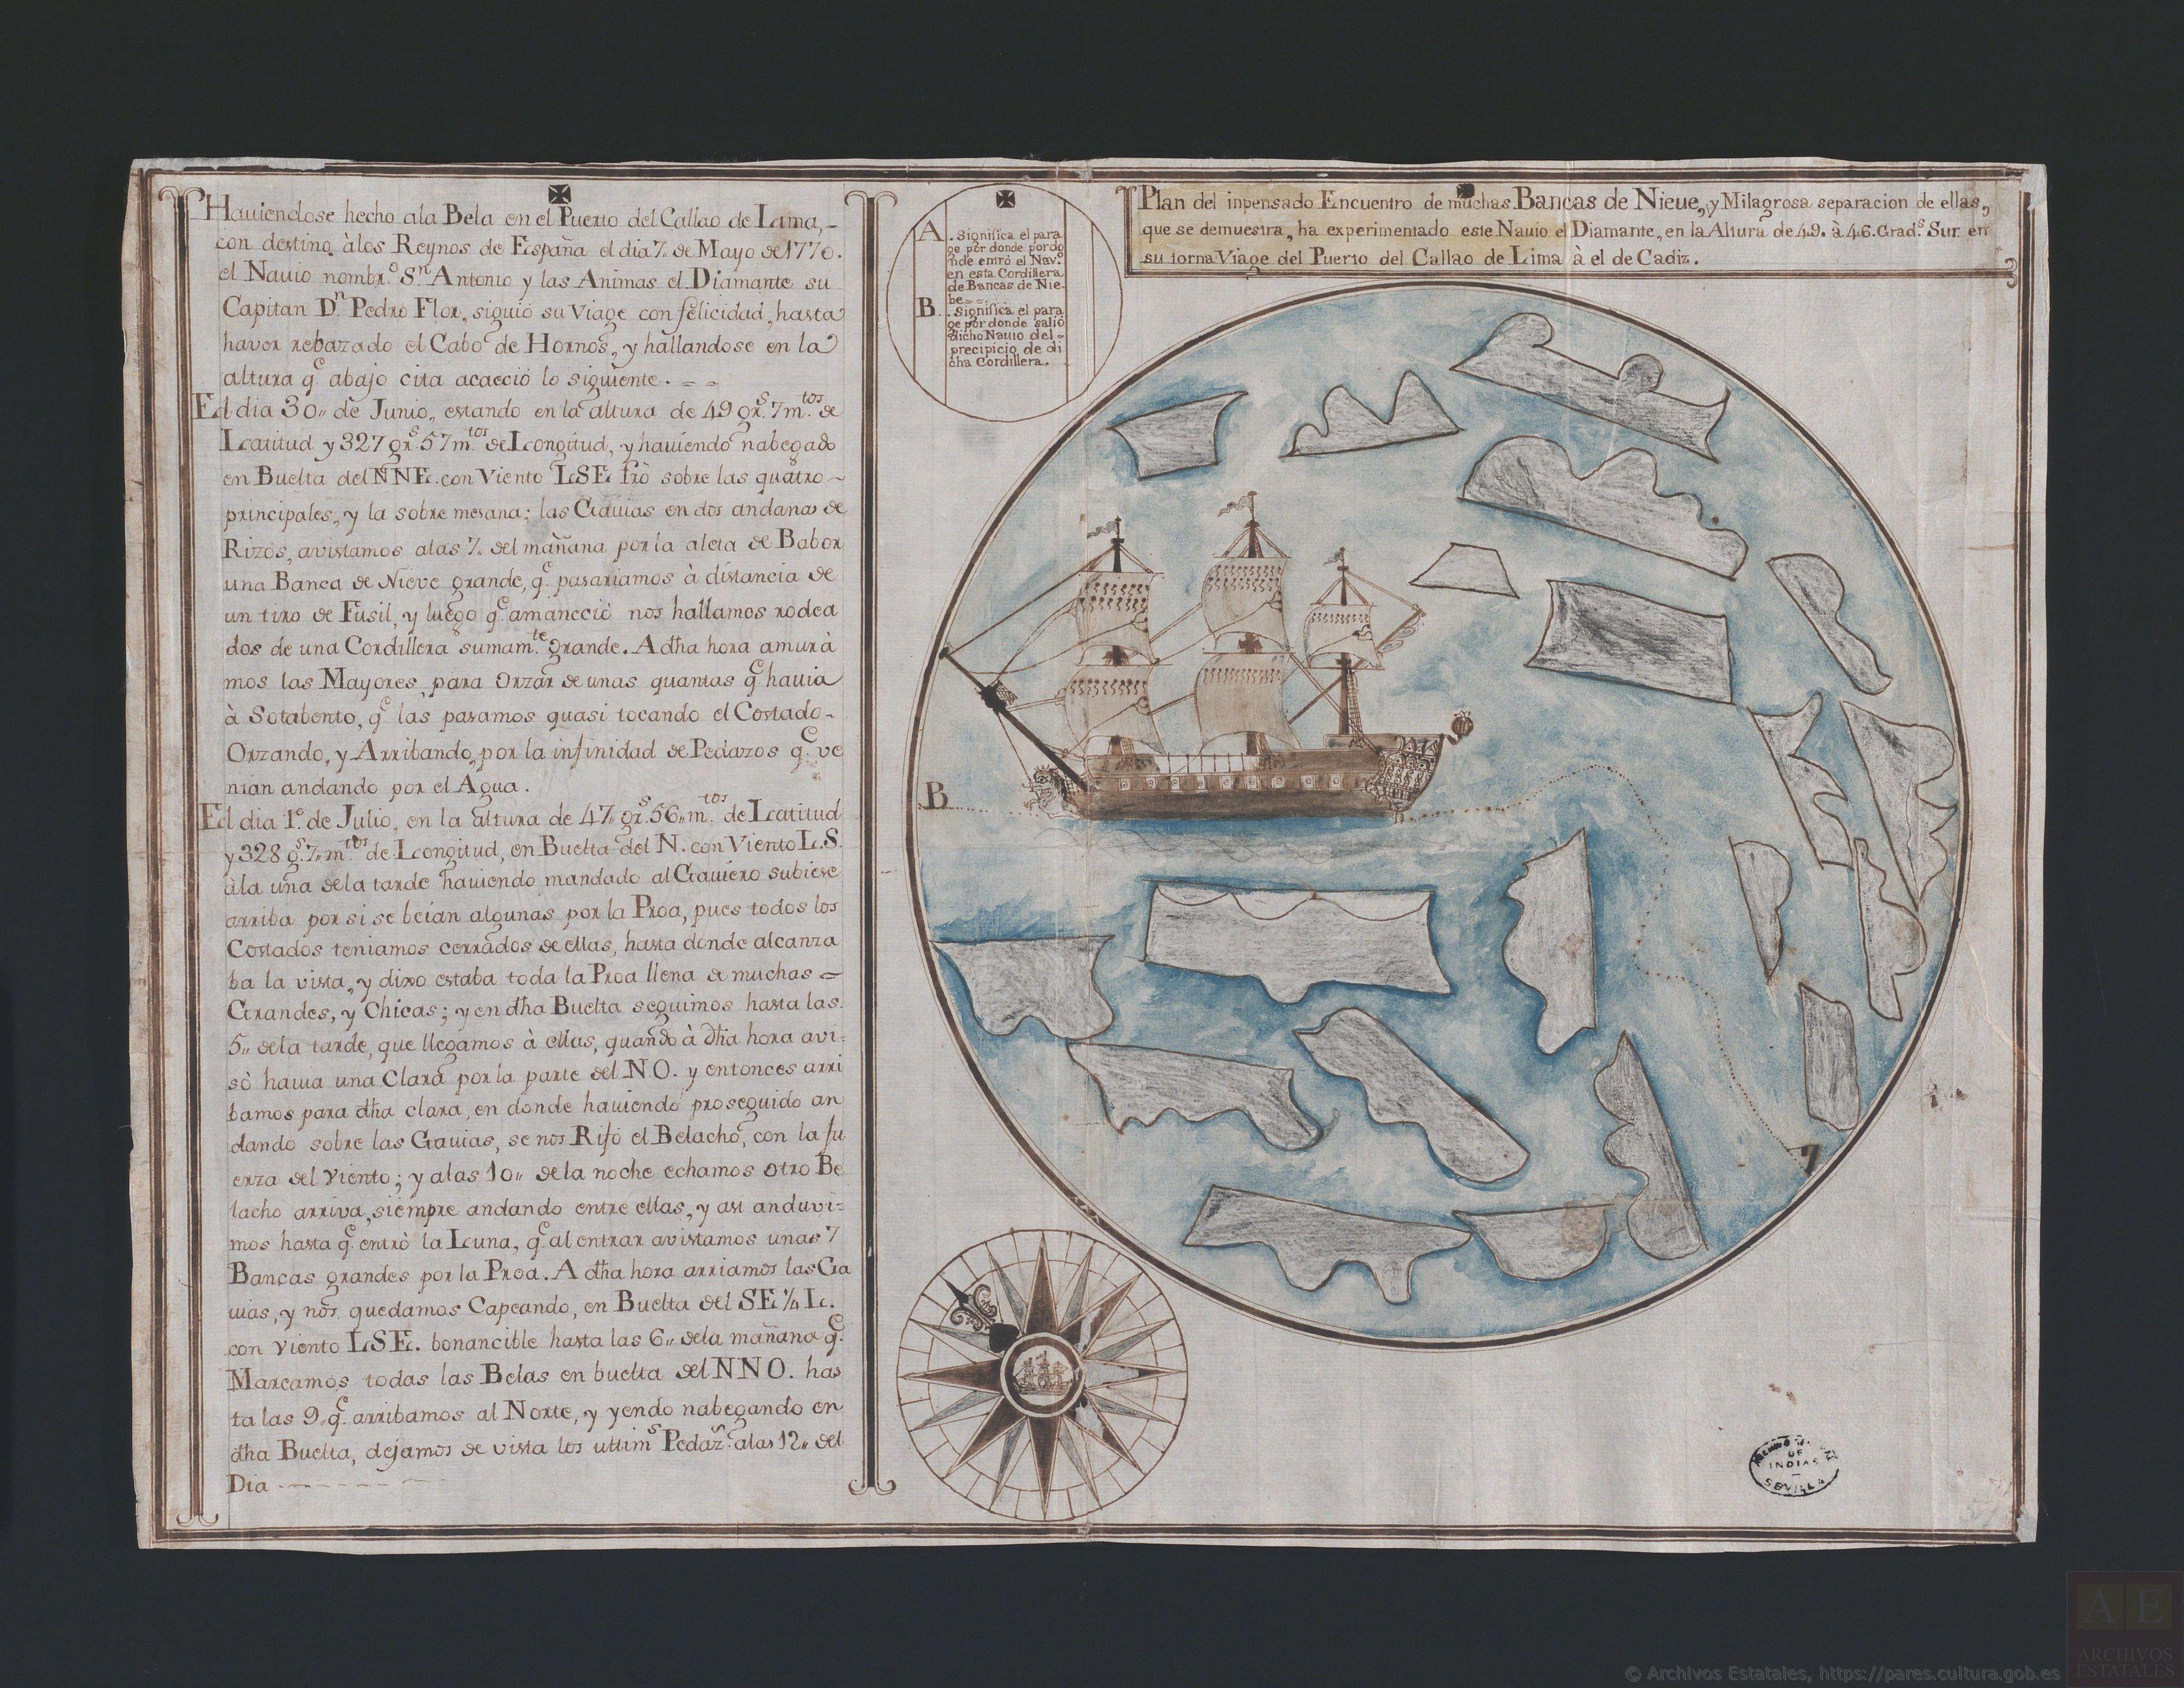 Hauiendose hecho ala Bela en el Puerto del Callao de Lima,
con destino àlos Reynos de España el dia 7,, de Mayo de 1770.
el Nauio nombr.º S.n Antonio y las Animas el Diamante su
Capitan D.n Pedro Flor, siguiò su Viage con felicidad, hasta
haver rebazado el Cabo de Hornos, y hallandose en la
altura q.e abajo cita acaeciò lo siguiente. = =
El dia 30,, de Junio, estando en la altura de 49 gr.s 7 m.tos de
Latitud y 327 gr.s 57 m.tos de Longitud, y hauiendo nabegado
en Buelta del NNE. con Viento LSE frò sobre las quatro ~
principales, y la sobre mesana; las Gauias en dos andanas de
Rizos, avistamos alas 7,, del mañana por la aleta de Babor
una Banca de Nieve grande, q.e pasariamos à distancia de
un tiro de Fusil, y luego q.e amaneciò nos hallamos rodea
dos de una Cordillera sumam.te grande. A dha hora amurà
mos las Mayores, para Orzar de unas quantas q.e hauia
à Sotabento, q.e las pasamos quasi tocando el Costado-
Orzando, y Arribando, por la infinidad de Pedazos q.e ve
nian andando por el Agua.
El dia 1.º de Julio, en la altura de 47,, gr.s 56,, m.tos de Latitud
y 328 g.s 7,, m.tos de Longitud, en Buelta del N. con Viento L.S.
àla una dela tarde hauiendo mandado al Gauiero subiese
arriba por si se beian algunas por la Proa, pues todos los
Costados teniamos cerrados de ellas, hasta donde alcanza
ba la vista, y dixo estaba toda la Proa llena de muchas =
Grandes, y Chicas; y en dha Buelta seguimos hasta las
5,, dela tarde, que llegamos à ellas, quando à dha hora avi=
sò hauia una Clara por la parte del NO. y entonces arri
bamos para dha clara, en donde hauiendo proseguido an
dando sobre las Gauias, se nos Rifò el Belacho, con la fu
erza del Viento; y alas 10,, de la noche echamos otro Be
lacho arriva, siempre andando entre ellas, y asi anduvi=
mos hasta q.e entrò la Luna, q.e al entrar avistamos unas 7
Bancas grandes por la Proa. A dha hora arriamos las Ga
uias, y nos quedamos Capeando, en Buelta del SE ¼ L.
con viento LSE. bonancible hasta las 6,, dela mañana q.e
Marcamos todas las Belas en buelta del NNO. has
ta las 9,, q.e arribamos al Norte, y yendo nabegando en
dha Buelta, dejamos de vista los ultim.s Pedaz.s alas 12,, del
Dia - - - - - -
A. Significa el para
ge por donde por do
nde entrò el Nav.º
en esta Cordillera
de Bancas de Nie
be = =
B. Significa el para
ge por donde saliò
dicho Nauio del-
precipicio de di
cha Cordillera.
Plan del inpensado Encuentro de muchas Bancas de Nieue, y Milagrosa separacion de ellas,
que se demuestra, ha experimentado este Nauio el Diamante, en la Altura de 49. à 46. Grad.s Sur en
su torna Viage del Puerto del Callao de Lima à el de Cadiz.
B
INDIAS
SEVILLA
© Archivos Estatales, https://pares.cultura.gob.es
AE
ARCHIVOS
ESTATALES